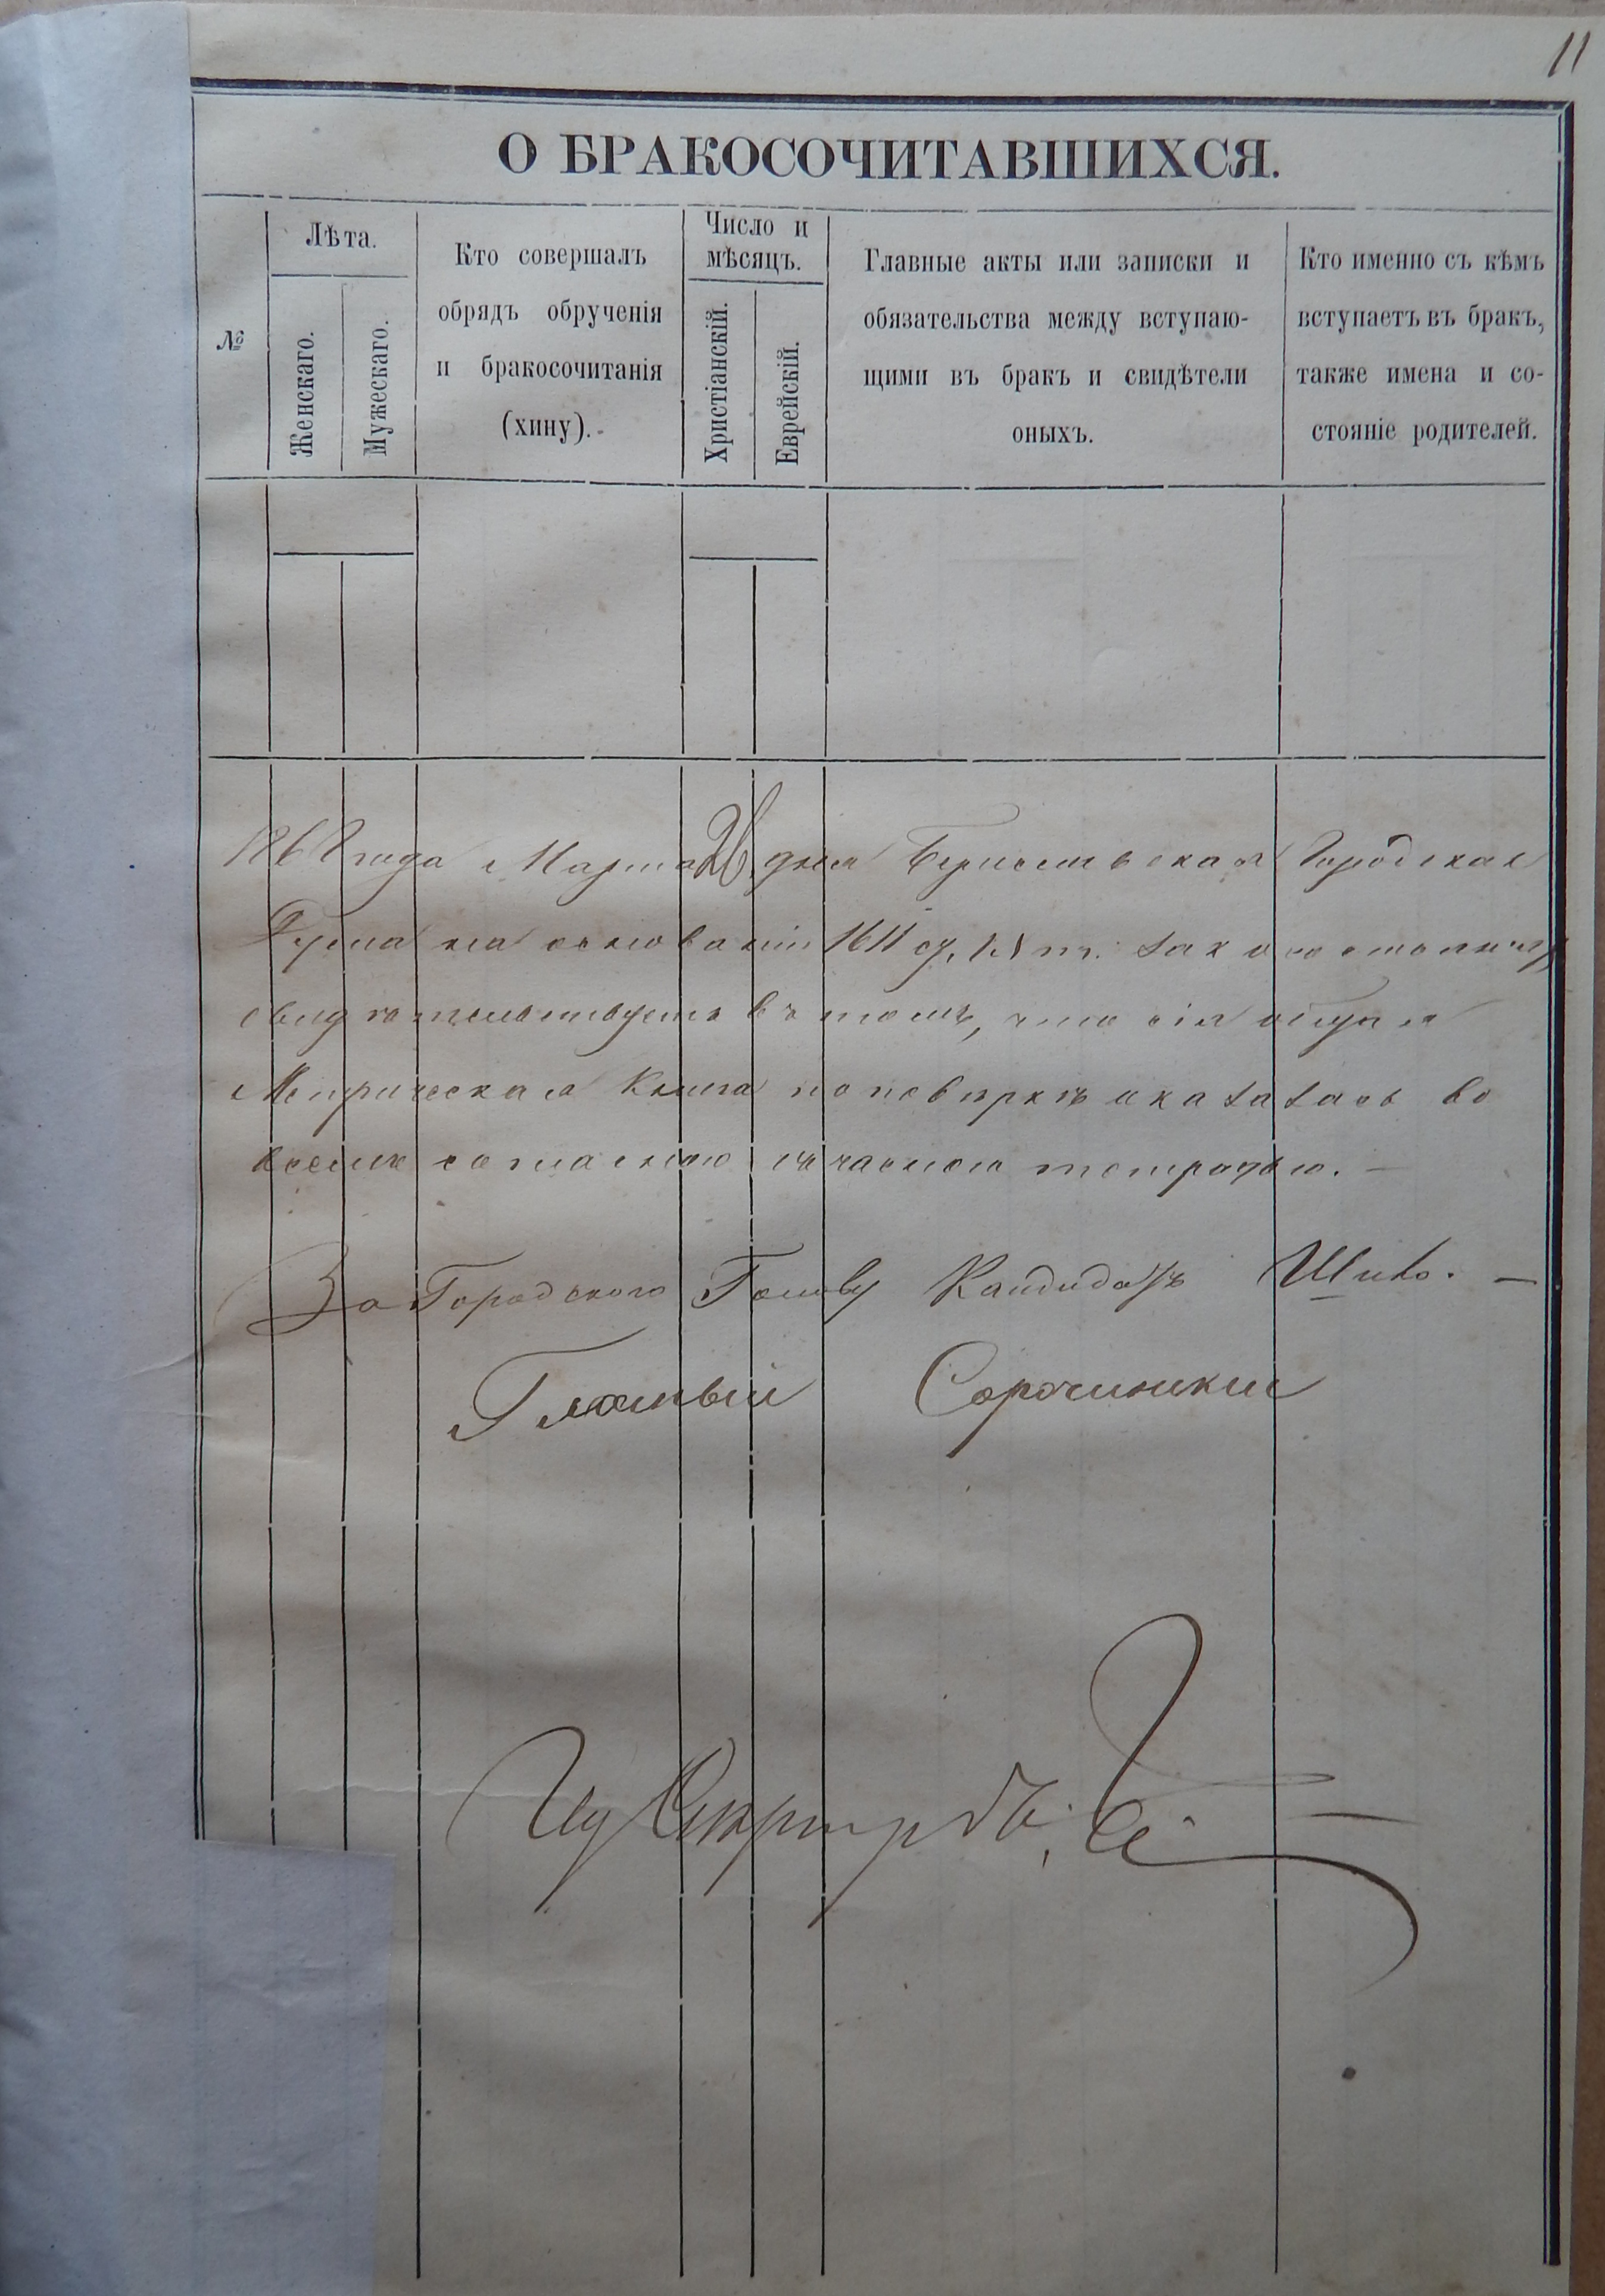 11
О БРАКОСОЧИТАВШИХСЯ.
№
Лѣта.
Женскаго.
Мужескаго.
Кто совершалъ
обрядъ обрученія
и бракосочитанія
(хину).
Число и
мѣсяцъ.
Христіанскій.
Еврейскій.
Главные акты или записки и
обязательства между вступаю-
щими въ бракъ и свидѣтели
оныхъ.
Кто именно съ кѣмъ
вступаетъ въ бракъ,
также имена и со-
стояніе родителей.
1868 года Марта 26 дня Бериславская Городская
Дума на основаніи 1611 ст. IX т. зак. о состояніи
свидѣтельствуетъ въ томъ, что сія
Метрическая Книга по повѣркѣ оказалась во
всемъ согласною съ частною тетрадью. —
За Городского Голову Кандидатъ —
Гласный Сорочинскій
Секретарь